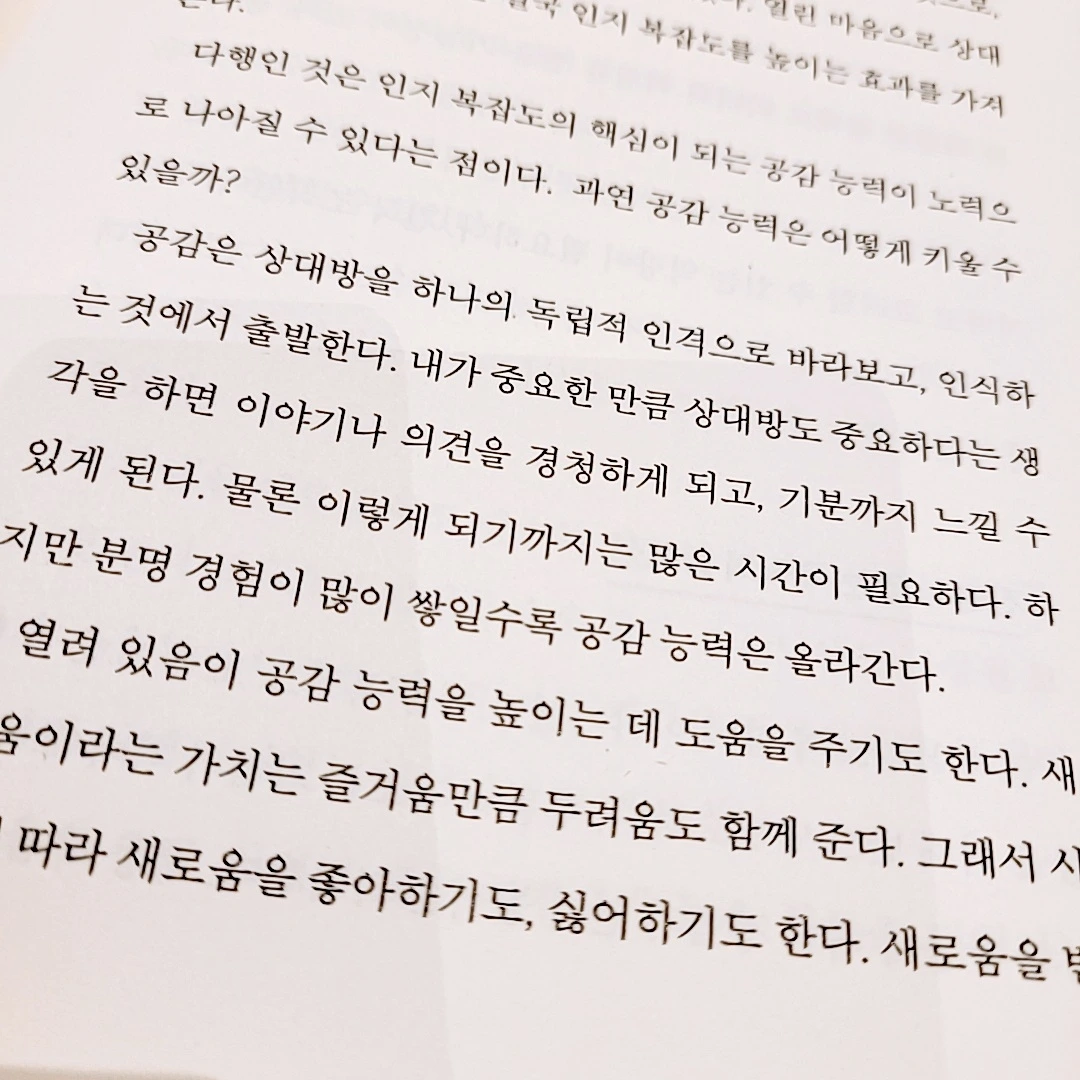 열린 마음으로 상대
인지 복잡도를 높이는 효과를 가져
다행인 것은 인지 복잡도의 핵심이 되는 공감 능력이 노력으
로 나아질 수 있다는 점이다. 과연 공감 능력은 어떻게 키울 수
있을까?
공감은 상대방을 하나의 독립적 인격으로 바라보고, 인식하
는 것에서 출발한다. 내가 중요한 만큼 상대방도 중요하다는 생
각을 하면 이야기나 의견을 경청하게 되고, 기분까지 느낄 수
있게 된다. 물론 이렇게 되기까지는 많은 시간이 필요하다. 하
지만 분명 경험이 많이 쌓일수록 공감 능력은 올라간다.
열려 있음이 공감 능력을 높이는 데 도움을 주기도 한다. 새
움이라는 가치는 즐거움만큼 두려움도 함께 준다. 그래서
따라 새로움을 좋아하기도, 싫어하기도 한다. 새로움을